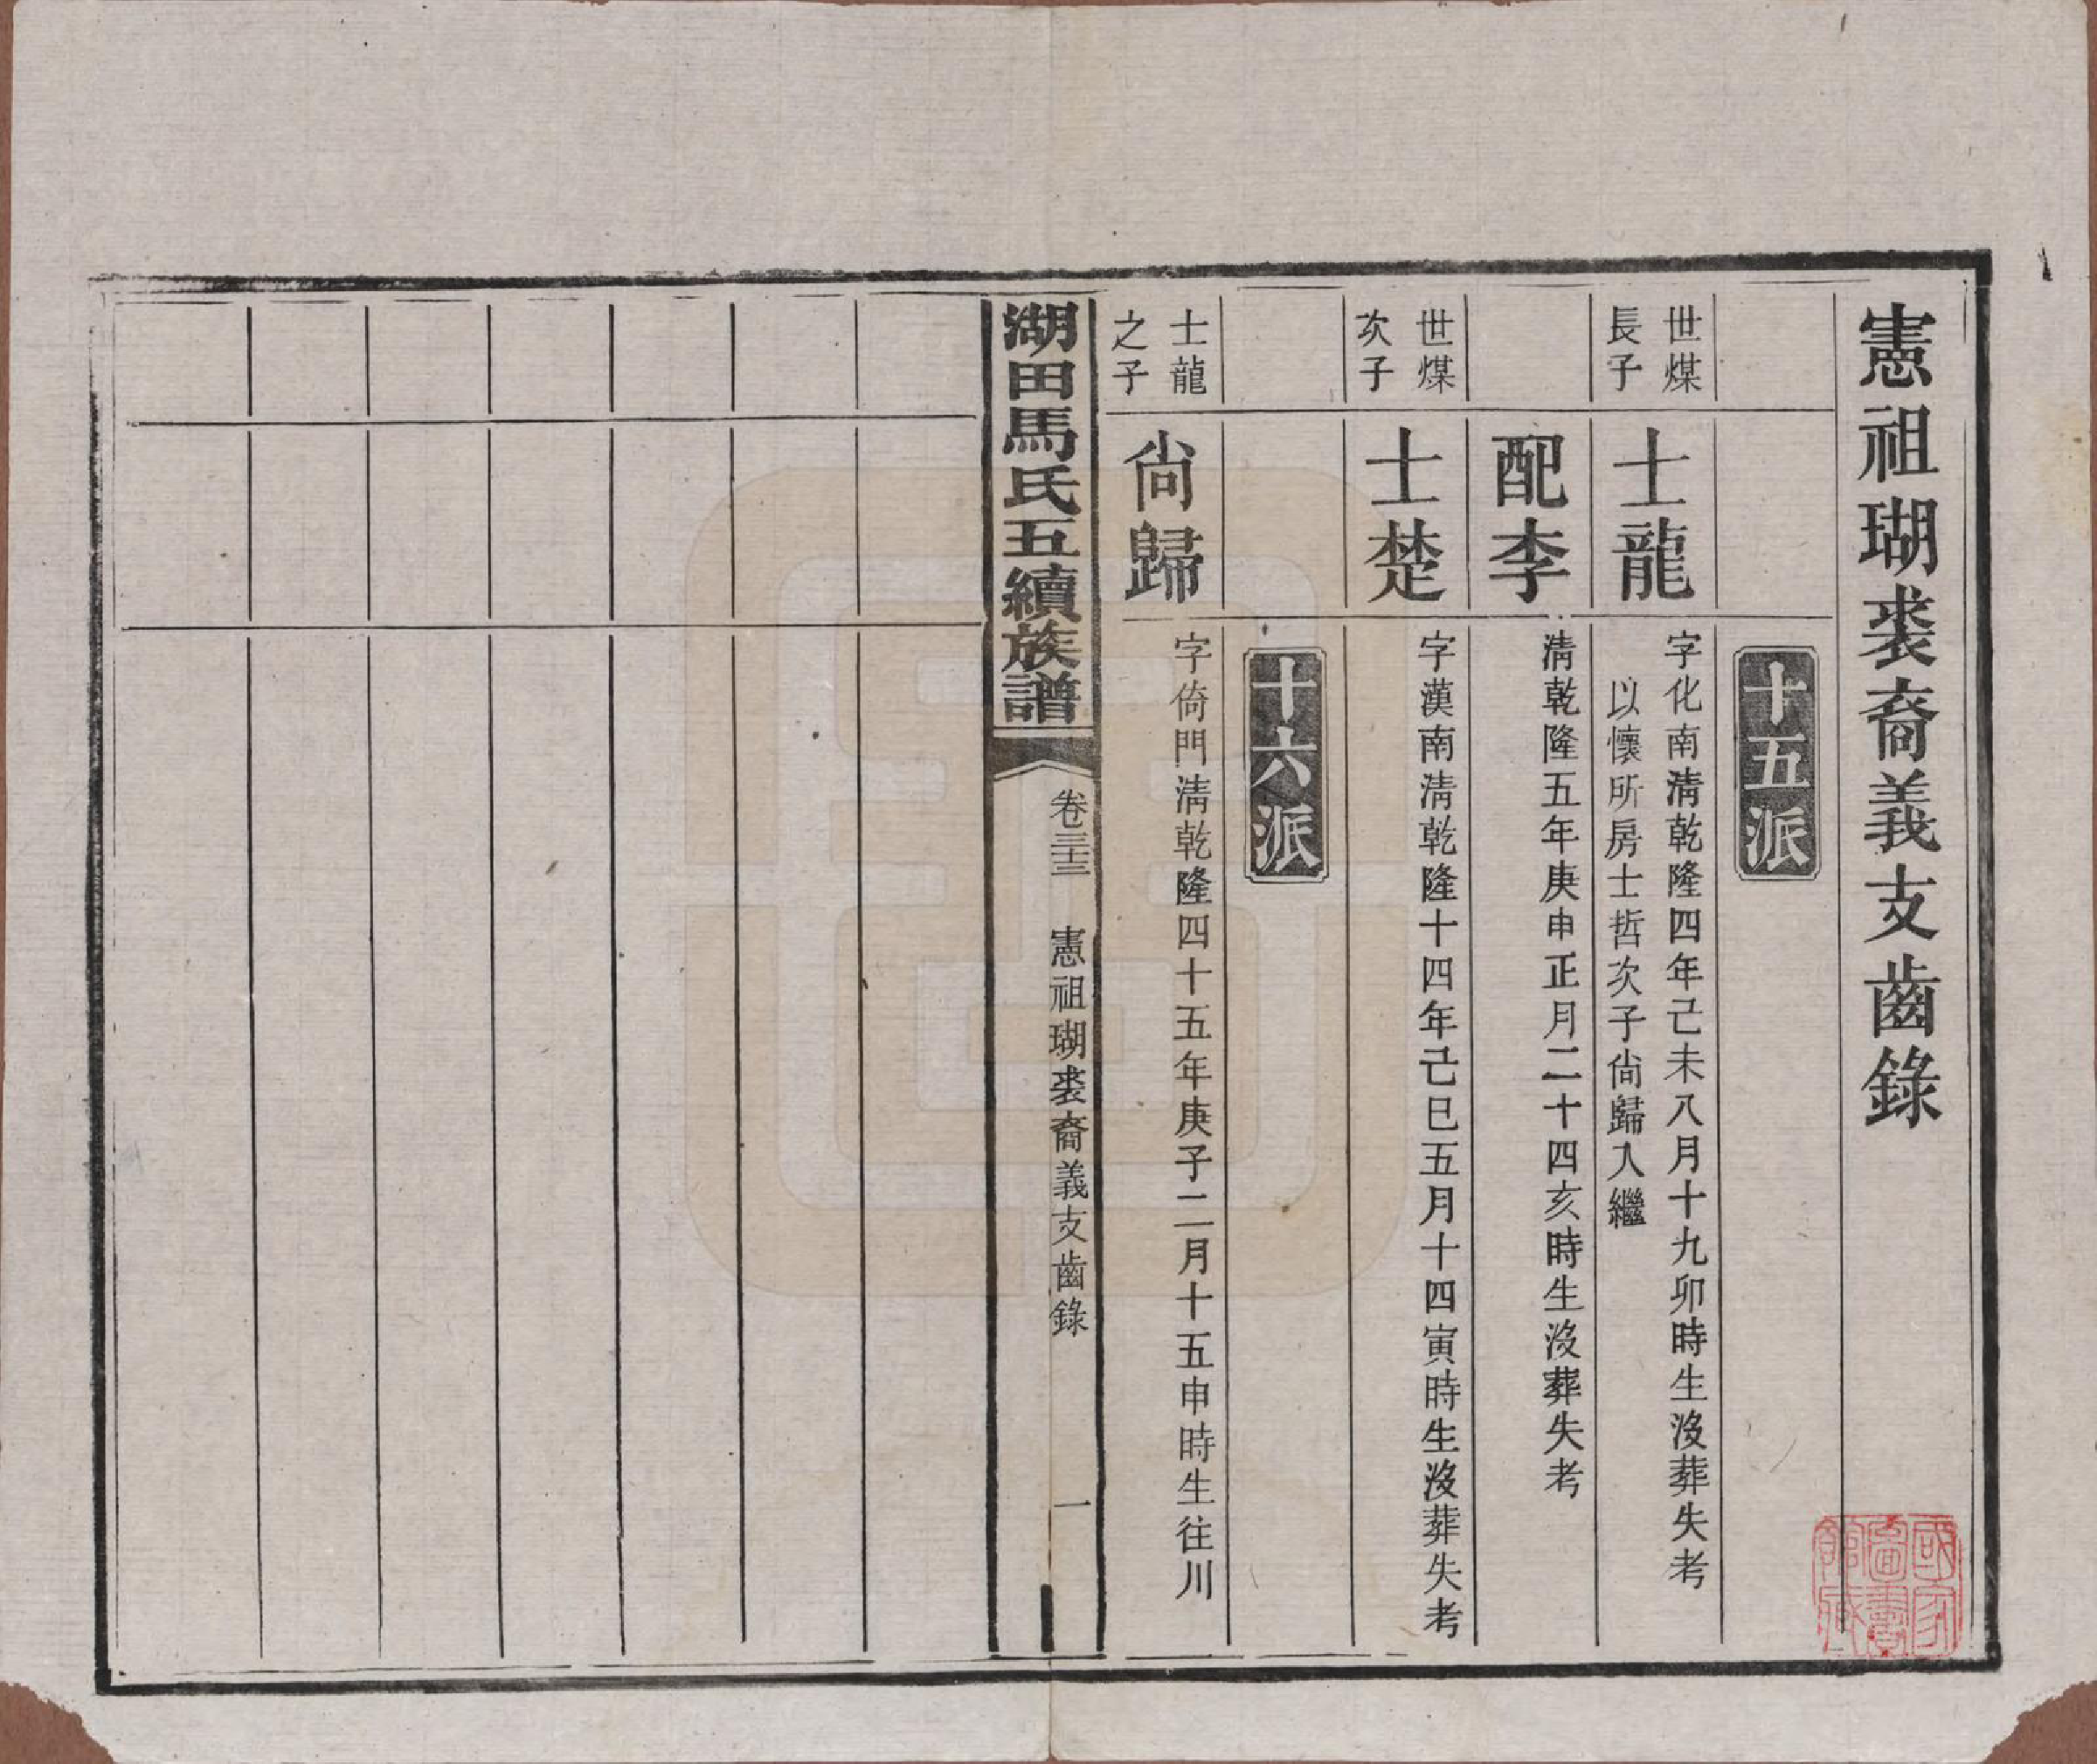 憲祖瑚裘裔義支齒錄
十五派
世煤
長子
士龍
字化南清乾隆四年己未八月十九卯時生沒葬失考
以懷所房士哲次子尙歸入繼
配李
清乾隆五年庚申正月二十四亥時生沒葬失考
世煤
次子
士楚
字漢南清乾隆十四年己巳五月十四寅時生沒葬失考
十六派
士龍
之子
尙歸
字倚門清乾隆四十五年庚子二月十五申時生往川
湖田馬氏五續族譜
卷三十三
憲祖瑚裘裔義支齒錄
一
國家
圖書
館藏